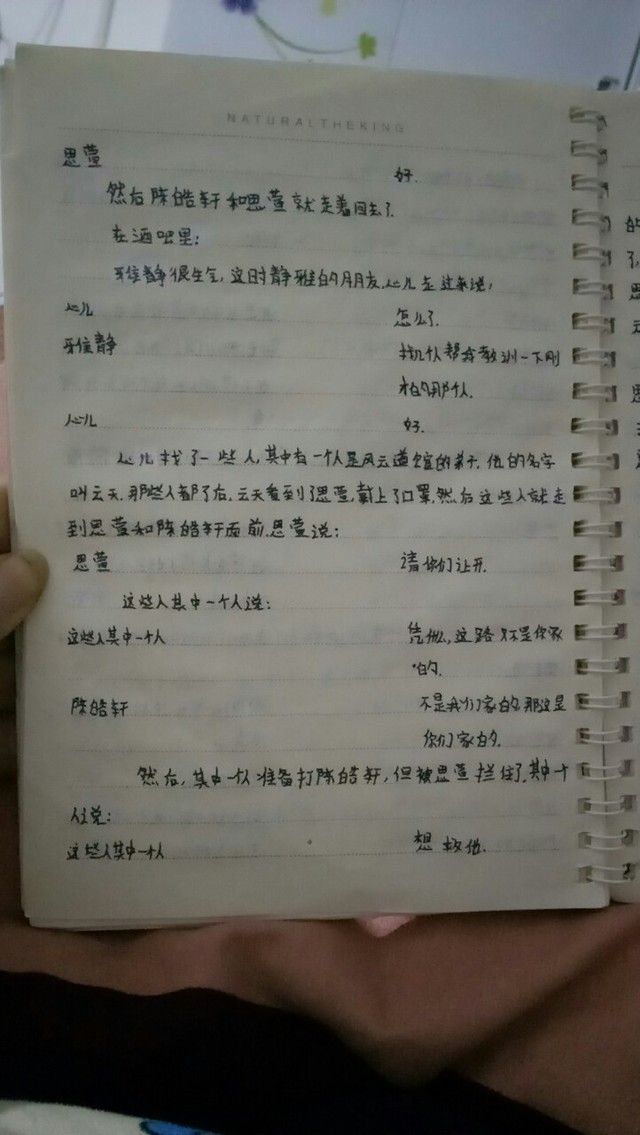 NATURALTHEKING
思萱 好.
然后陈皓轩和思萱就走着回去了.
在酒吧里:
雅静很生气,这时静雅的朋友,心儿走过来说:
心儿 怎么了.
雅静 找几个人帮我教训一下刚
才的那个人.
心儿 好.
心儿找了一些人,其中有一个人是风云道馆的弟子.他的名字
叫云天.那些人都了后.云天看到了思萱,戴上了口罩.然后这些人就走
到思萱和陈皓轩面前.思萱说:
思萱 请你们让开.
这些人其中一个人说:
这些人其中一个人 凭什么,这路又不是你家
的.
陈皓轩 不是我们家的.那这是
你们家的.
然后,其中一个人准备打陈皓轩,但被思萱拦住了.其中一个
人说:
这些人其中一个人 想救他.
的
了,
思
云
思